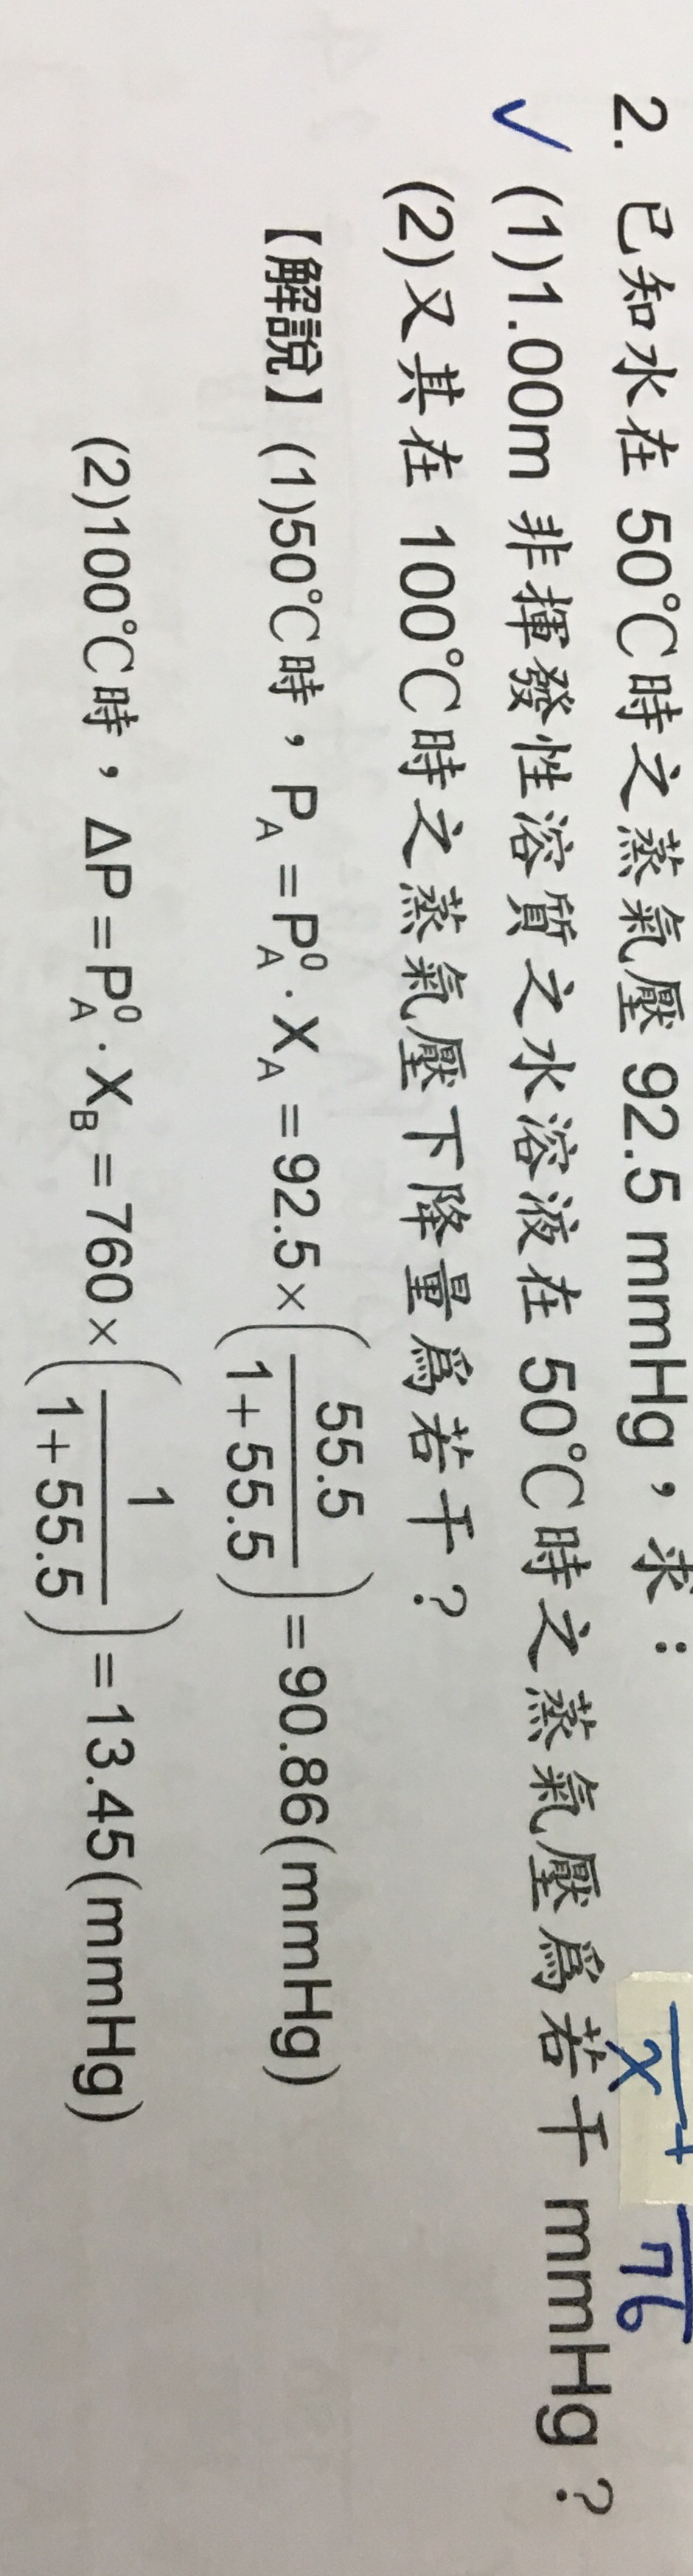 2. 已知水在 50℃時之蒸氣壓 92.5 mmHg，求：
✓ (1)1.00m 非揮發性溶質之水溶液在 50℃時之蒸氣壓爲若干 mmHg？
(2)又其在 100℃時之蒸氣壓下降量爲若干？
【解說】(1)50℃時，P_A = P⁰_A · X_A = 92.5 × (55.5 / 1+55.5) = 90.86(mmHg)
(2)100℃時，ΔP = P⁰_A · X_B = 760 × (1 / 1+55.5) = 13.45(mmHg)
x + 76